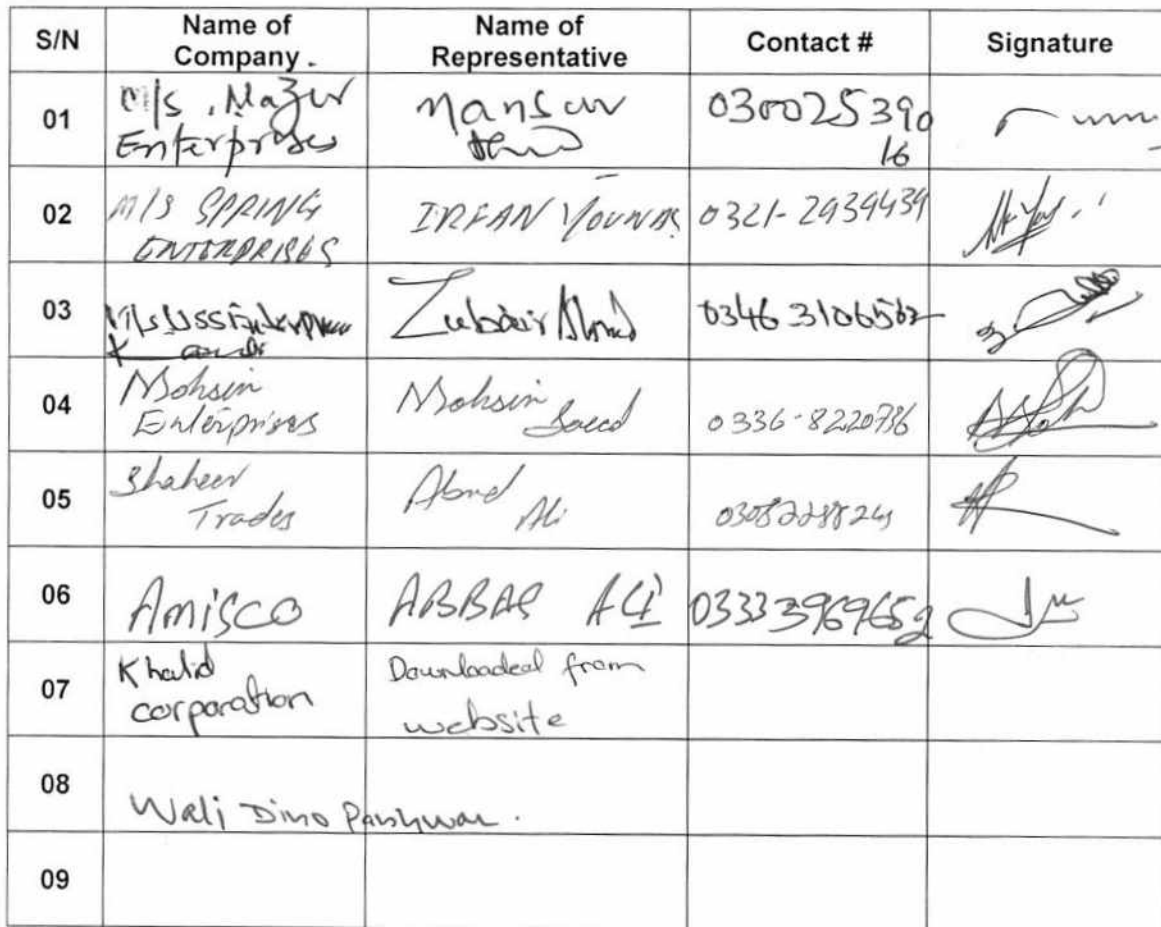 S/N Name of Company. Name of Representative Contact # Signature
01 M/s. Enterprises Mansur 03002539016
02 M/S SPRING ENTERPRISES IRFAN YOUNAS 0321-2939439
03 M/s Zubair Ahmed 0346 3106502
04 Mohsin Enterprises Mohsin Saeed 0336-8220736
05 Shaheer Trades Ali
06 Amisco ABBAS ALI 03333969652
07 Khalid corporation Downloaded from website
08 Wali Dino
09